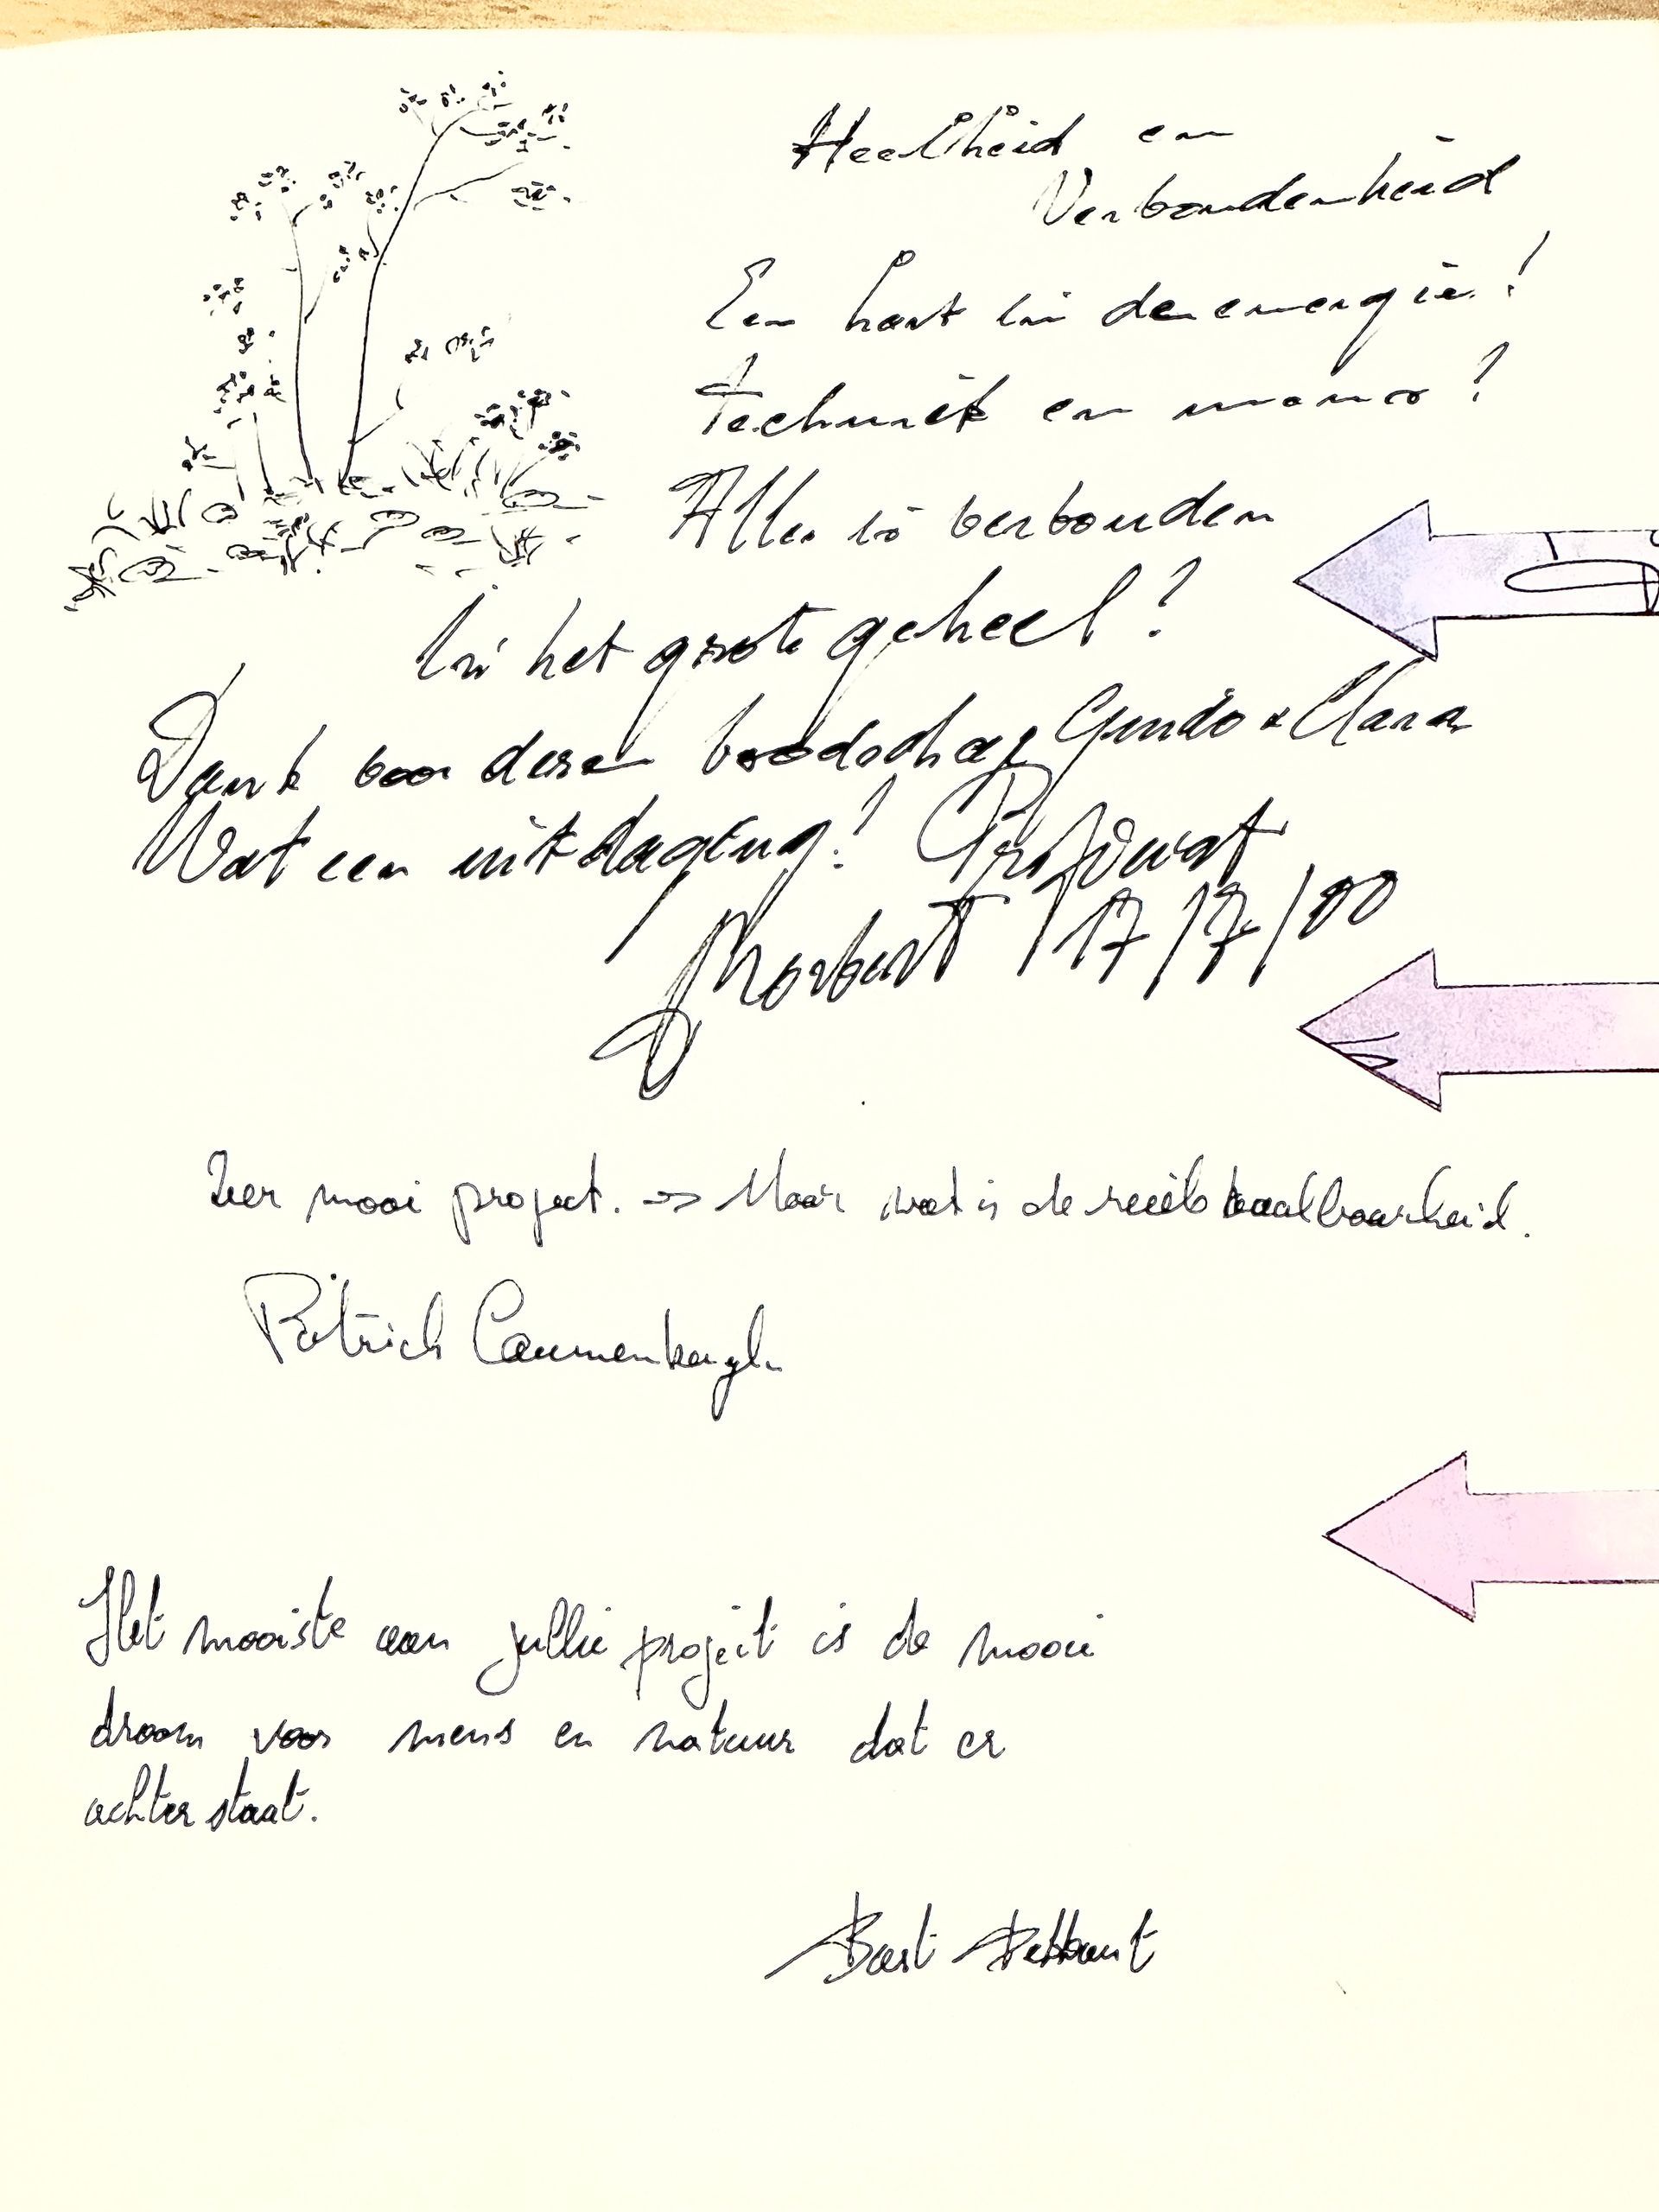 Heelheid en
Verbondenheid
Een hart in de energie!
techniek en mens?
Alles is verbonden
In het grote geheel?
Dank voor deze boodschap Guido & Clara
Wat een uitdaging! Proficiat
Norbert 17/7/00
Zeer mooi project. => Maar wat is de reële haalbaarheid.
Patrick
Het mooiste aan jullie project is de mooi
droom voor mens en natuur dat er
achter staat.
Bart